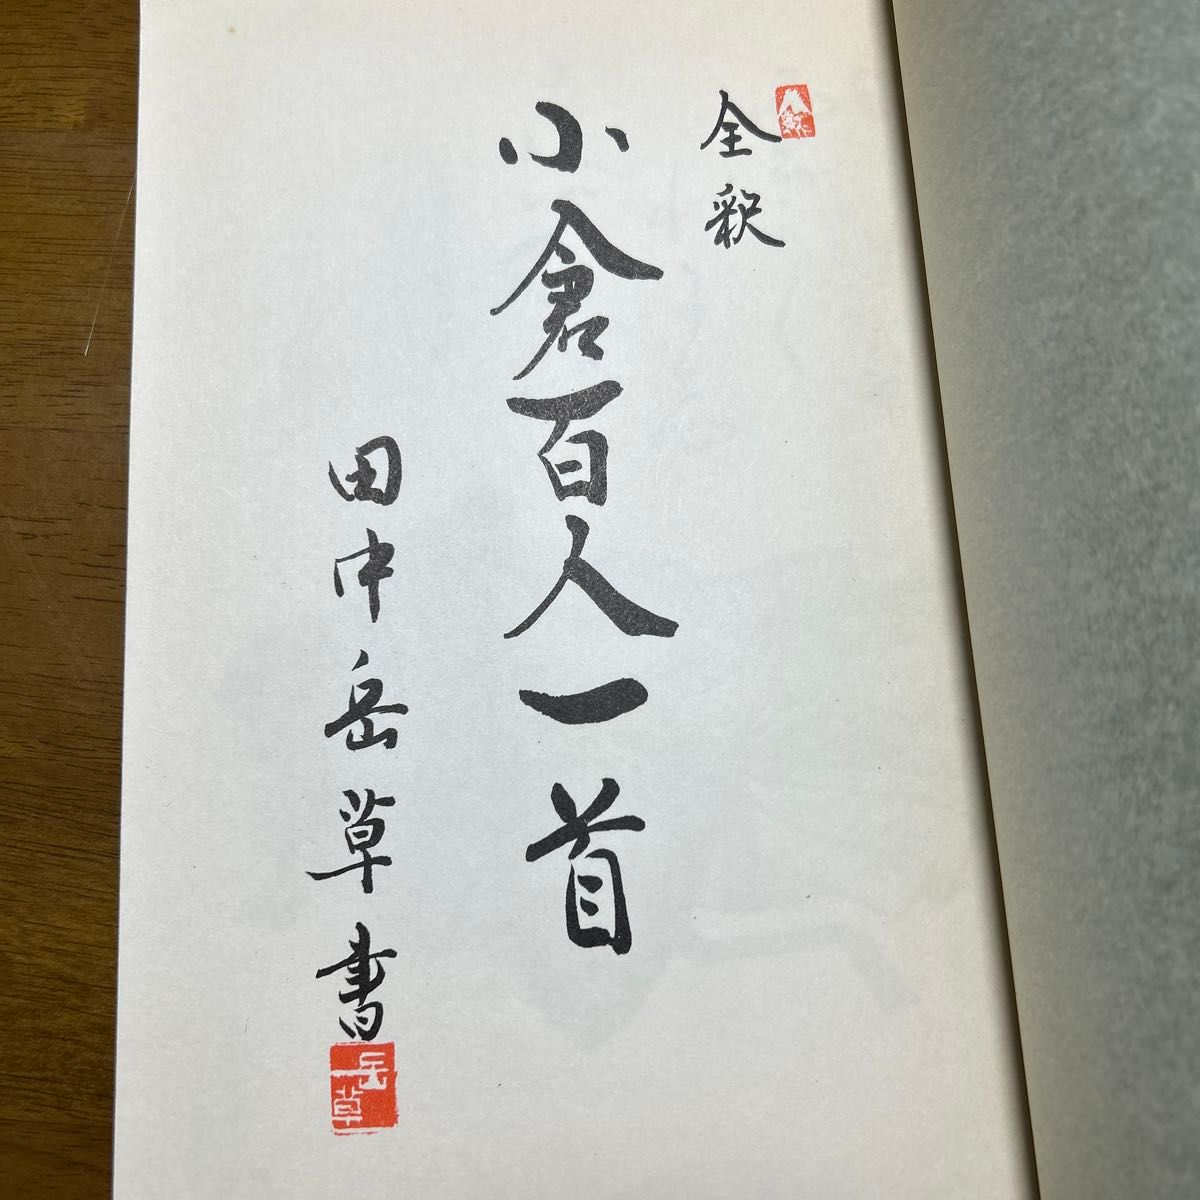 全釈
小倉百人一首
田中岳草書
岳草